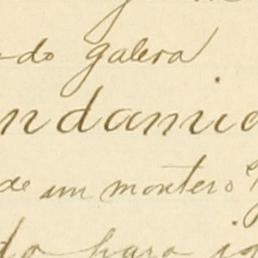 do galera
ndamia
de un montero
do para